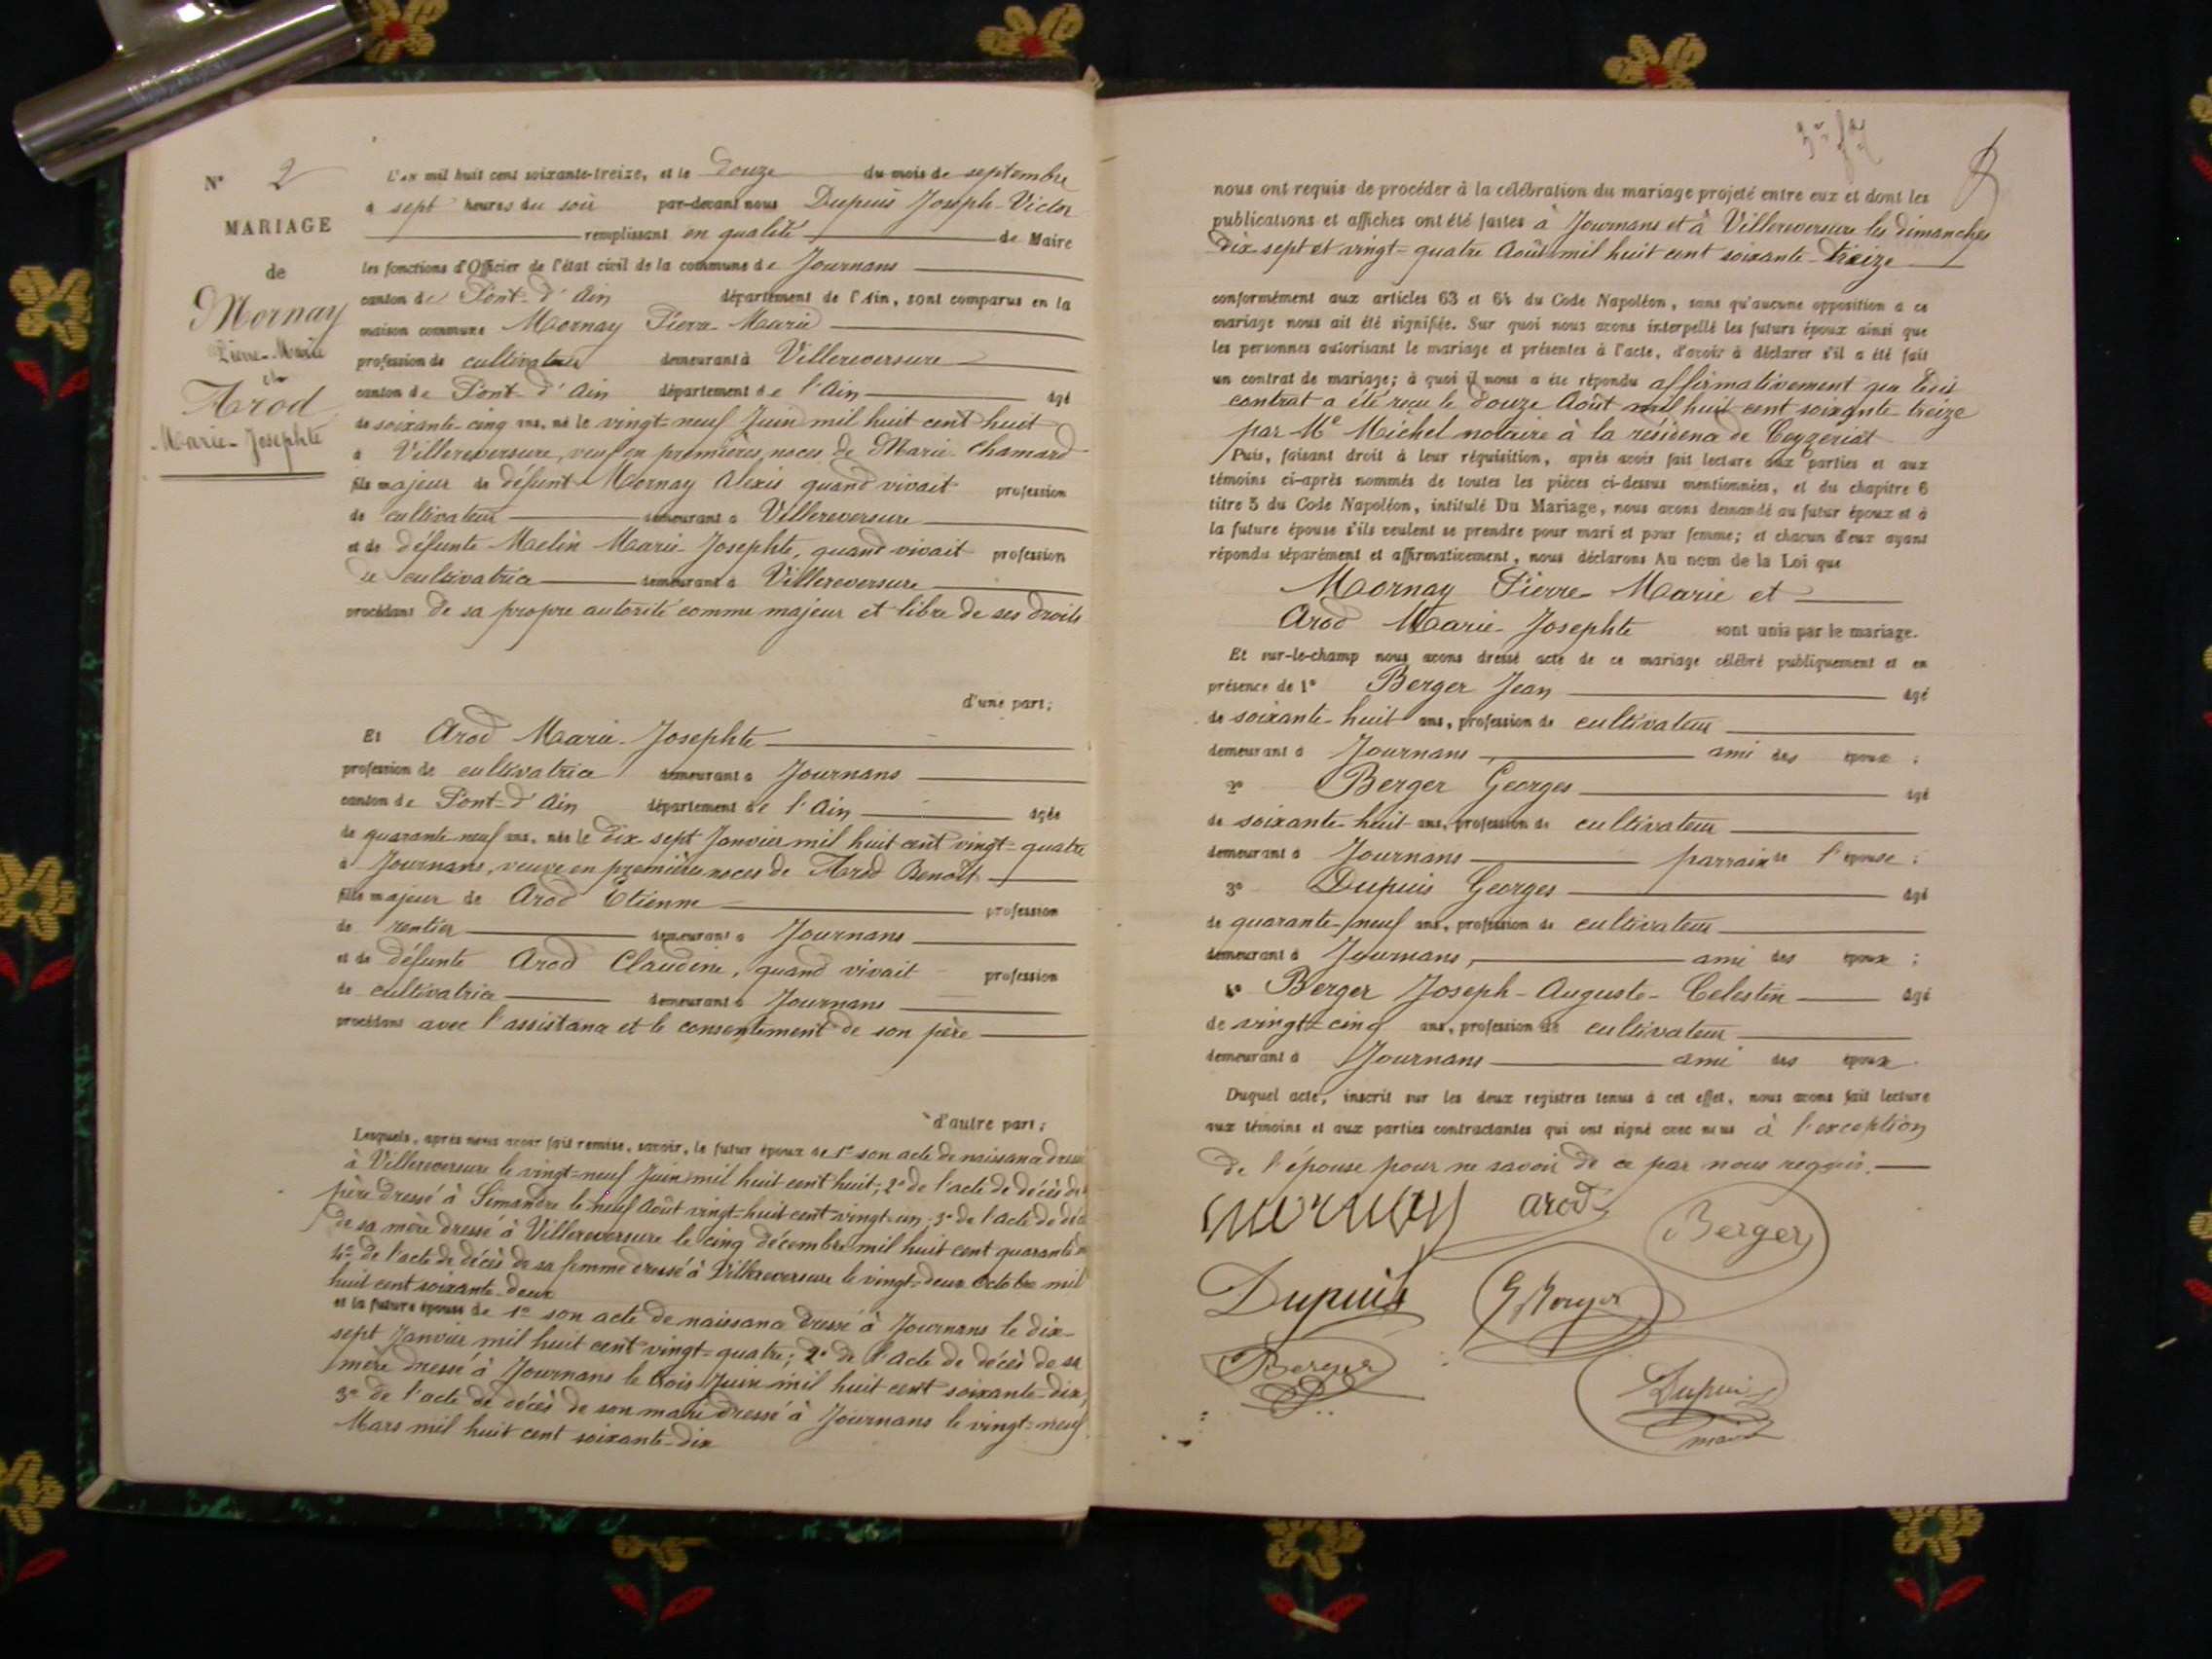 N° 2
MARIAGE
de
Mornay
Pierre-Marie
et
Arod
Marie-Josephte
L'an mil huit cent soixante-treize, et le douze du mois de septembre
à sept heures du soir par-devant nous Dupuis Joseph-Victor
remplissant en qualité de Maire
les fonctions d'Officier de l'état civil de la commune de Journans
canton de Pont-d'Ain département de l'Ain, sont comparus en la
maison commune Mornay Pierre-Marie
profession de cultivateur demeurant à Villereversure
canton de Pont-d'Ain département de l'Ain âgé
de soixante-cinq ans, né le vingt-neuf Juin mil huit cent huit
à Villereversure, veuf en premières noces de Marie Chamard
fils majeur de défunt Mornay Alexis quand vivait profession
de cultivateur demeurant à Villereversure
et de défunte Melin Marie-Josephte, quand vivait profession
de cultivatrice demeurant à Villereversure
procédant de sa propre autorité comme majeur et libre de ses droits
d'une part;
Et Arod Marie-Josephte
profession de cultivatrice demeurant à Journans
canton de Pont-d'Ain département de l'Ain âgée
de quarante neuf ans, née le dix-sept Janvier mil huit cent vingt=quatre
à Journans, veuve en premières noces de Arod Benoît
fille majeur de Arod Etienne profession
de rentier demeurant à Journans
et de défunte Arod Claudine, quand vivait profession
de cultivatrice demeurant à Journans
procédant avec l'assistance et le consentement de son père
d'autre part;
Lesquels, après nous avoir fait remise, savoir, le futur époux de 1° son acte de naissance dressé
à Villereversure le vingt=neuf Juin mil huit cent huit; 2° de l'acte de décès de
père dressé à Simandre le neuf Août vingt=huit cent vingt=un; 3° de l'acte de
de sa mère dressé à Villereversure le cinq décembre mil huit cent quarante
4° de l'acte de décès de sa femme dressé à Villereversure le vingt=deux Octobre mil
huit cent soixante-deux
et la future épouse de 1° son acte de naissance dressé à Journans le dix-
sept Janvier mil huit cent vingt=quatre; 2° de l'acte de décès de sa
mère dressé à Journans le trois Juin mil huit cent soixante-dix;
3° de l'acte de décès de son mari dressé à Journans le vingt=neuf
Mars mil huit cent soixante-dix
nous ont requis de procéder à la célébration du mariage projeté entre eux et dont les
publications et affiches ont été faites à Journans et à Villereversure les dimanches
dix-sept et vingt=quatre Août mil huit cent soixante-treize
conformément aux articles 63 et 64 du Code Napoléon, sans qu'aucune opposition a ce
mariage nous ait été signifiée. Sur quoi nous avons interpellé les futurs époux ainsi que
les personnes autorisant le mariage et présentes à l'acte, d'avoir à déclarer s'il a été fait
un contrat de mariage; à quoi il nous a été répondu affirmativement que
contrat a été reçu le douze Août mil huit cent soixante-treize
par Me Michel notaire à la résidence de Ceyzeriat
Puis, faisant droit à leur réquisition, après avoir fait lecture aux parties et aux
témoins ci-après nommés de toutes les pièces ci-dessus mentionnées, et du chapitre 6
titre 5 du Code Napoléon, intitulé Du Mariage, nous avons demandé au futur époux et à
la future épouse s'ils veulent se prendre pour mari et pour femme; et chacun d'eux ayant
répondu séparément et affirmativement, nous déclarons Au nom de la Loi que
Mornay Pierre-Marie et
Arod Marie-Josephte sont unis par le mariage.
Et sur-le-champ nous avons dressé acte de ce mariage célébré publiquement et en
présence de 1° Berger Jean âgé
de soixante-huit ans, profession de cultivateur
demeurant à Journans ami des époux;
2° Berger Georges âgé
de soixante-huit ans, profession de cultivateur
demeurant à Journans parrain de l'épouse;
3° Dupuis Georges âgé
de quarante-neuf ans, profession de cultivateur
demeurant à Journans, ami des époux;
4° Berger Joseph-Auguste-Celestin âgé
de vingt=cinq ans, profession de cultivateur
demeurant à Journans ami des époux.
Duquel acte, inscrit sur les deux registres tenus à cet effet, nous avons fait lecture
aux témoins et aux parties contractantes qui ont signé avec nous à l'exception
de l'épouse pour ne savoir de ce par nous requis.
Mornay Arod Berger
Dupuis G Berger
Berger Dupuis
maire